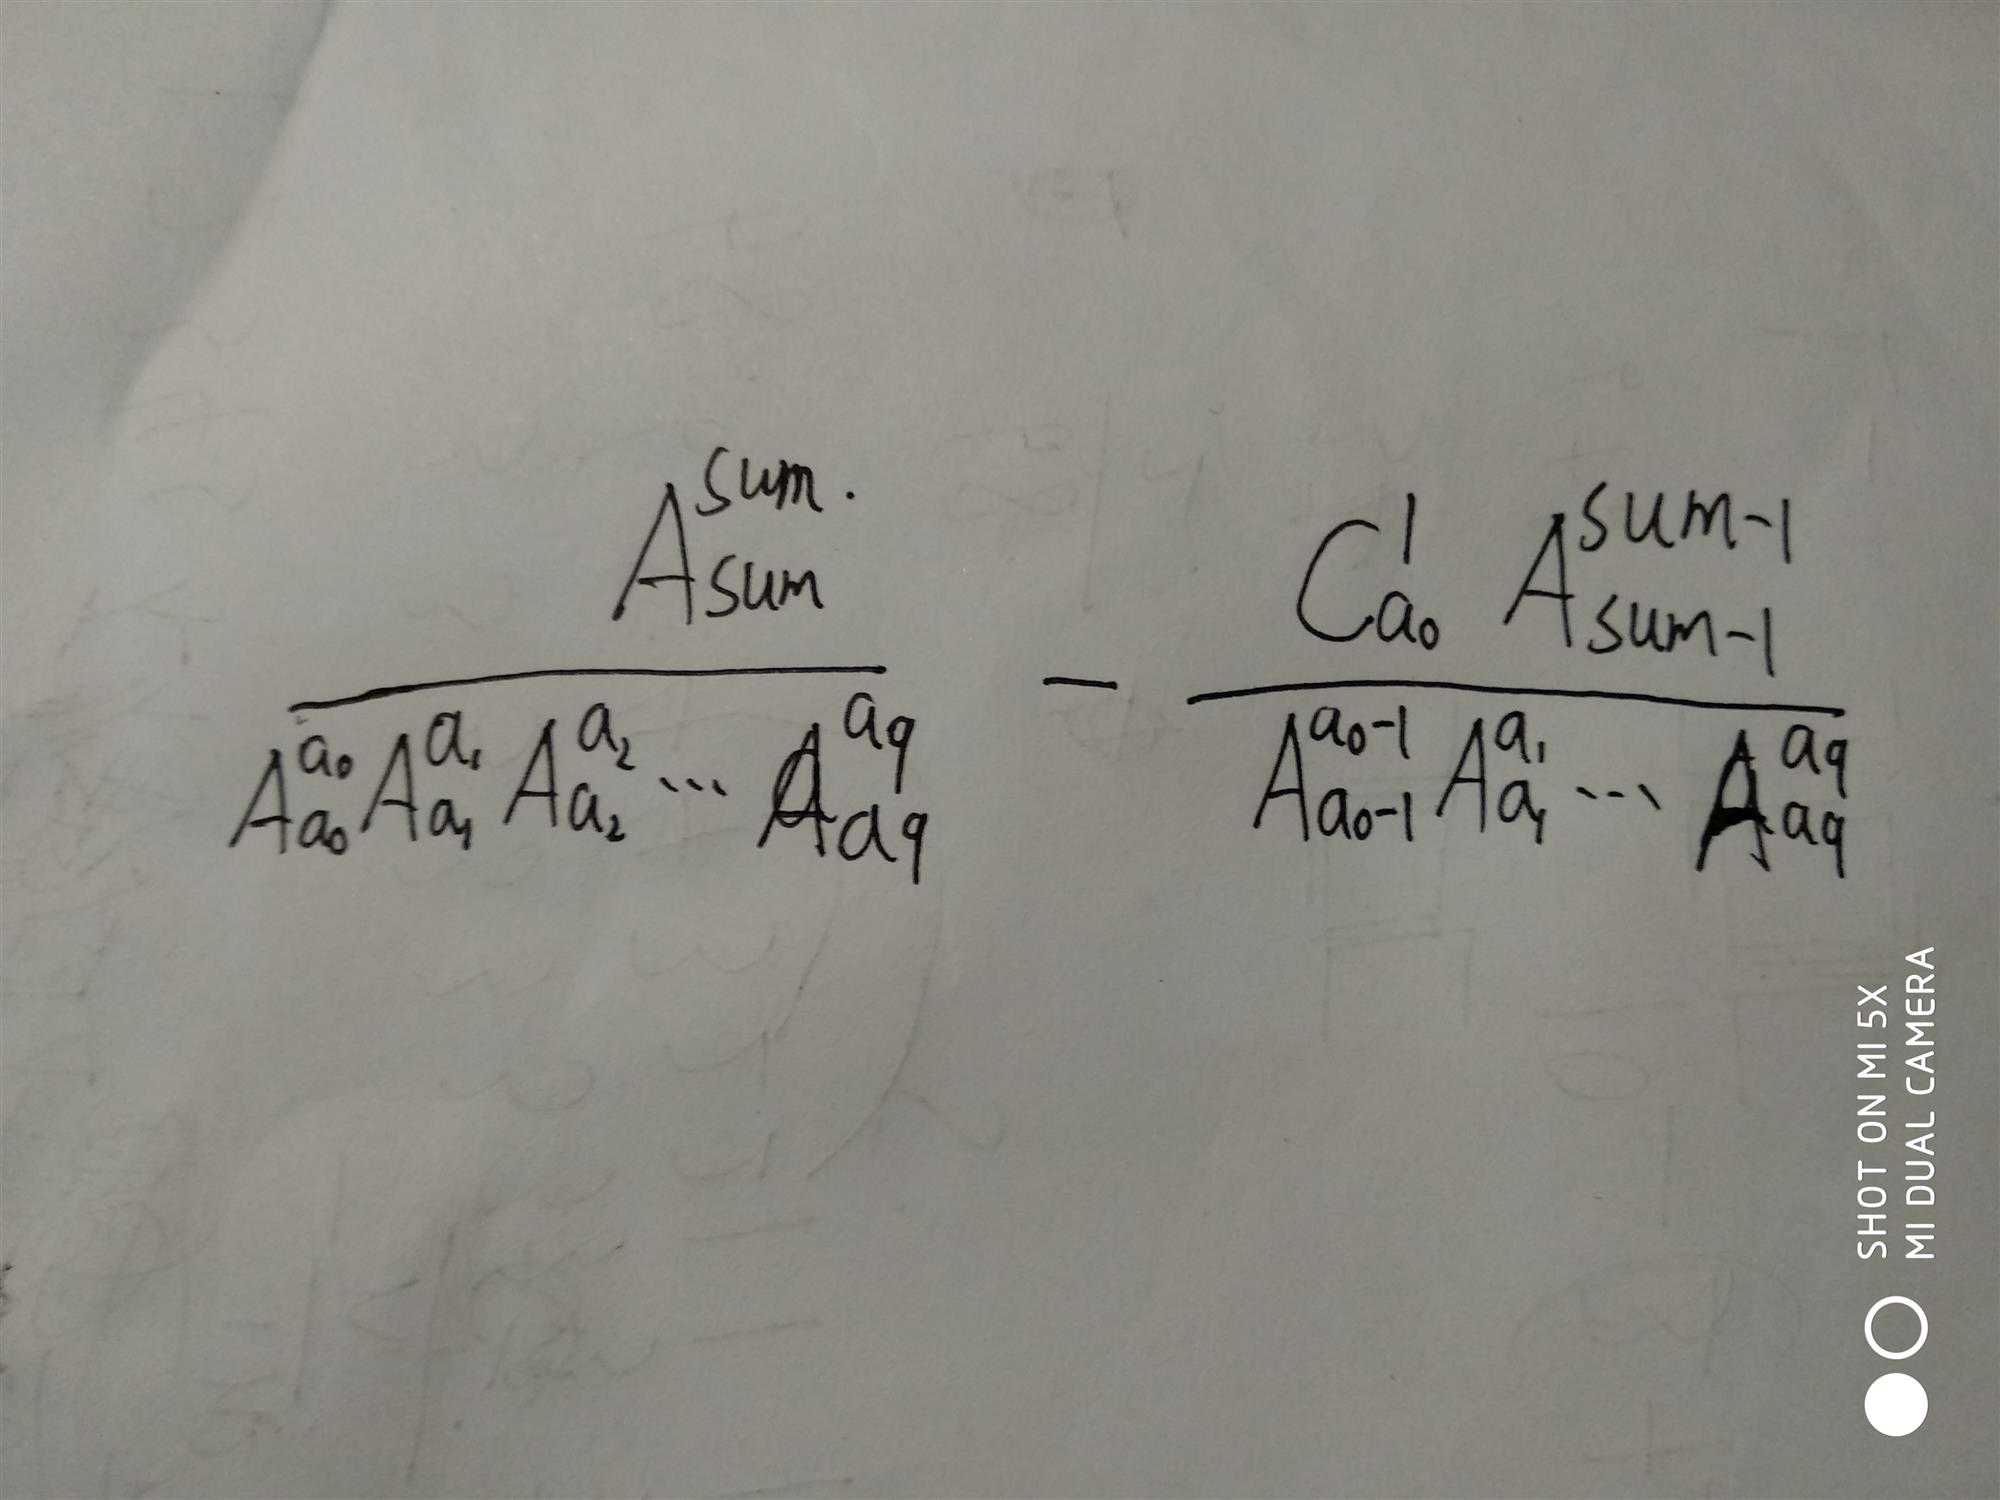 $\frac{A_{sum}^{sum.}}{A_{a_0}^{a_0} A_{a_1}^{a_1} A_{a_2}^{a_2} \cdots A_{a_9}^{a_9}} - \frac{C_{a_0}^{1} A_{sum-1}^{sum-1}}{A_{a_0-1}^{a_0-1} A_{a_1}^{a_1} \cdots A_{a_9}^{a_9}}$
SHOT ON MI 5X
MI DUAL CAMERA